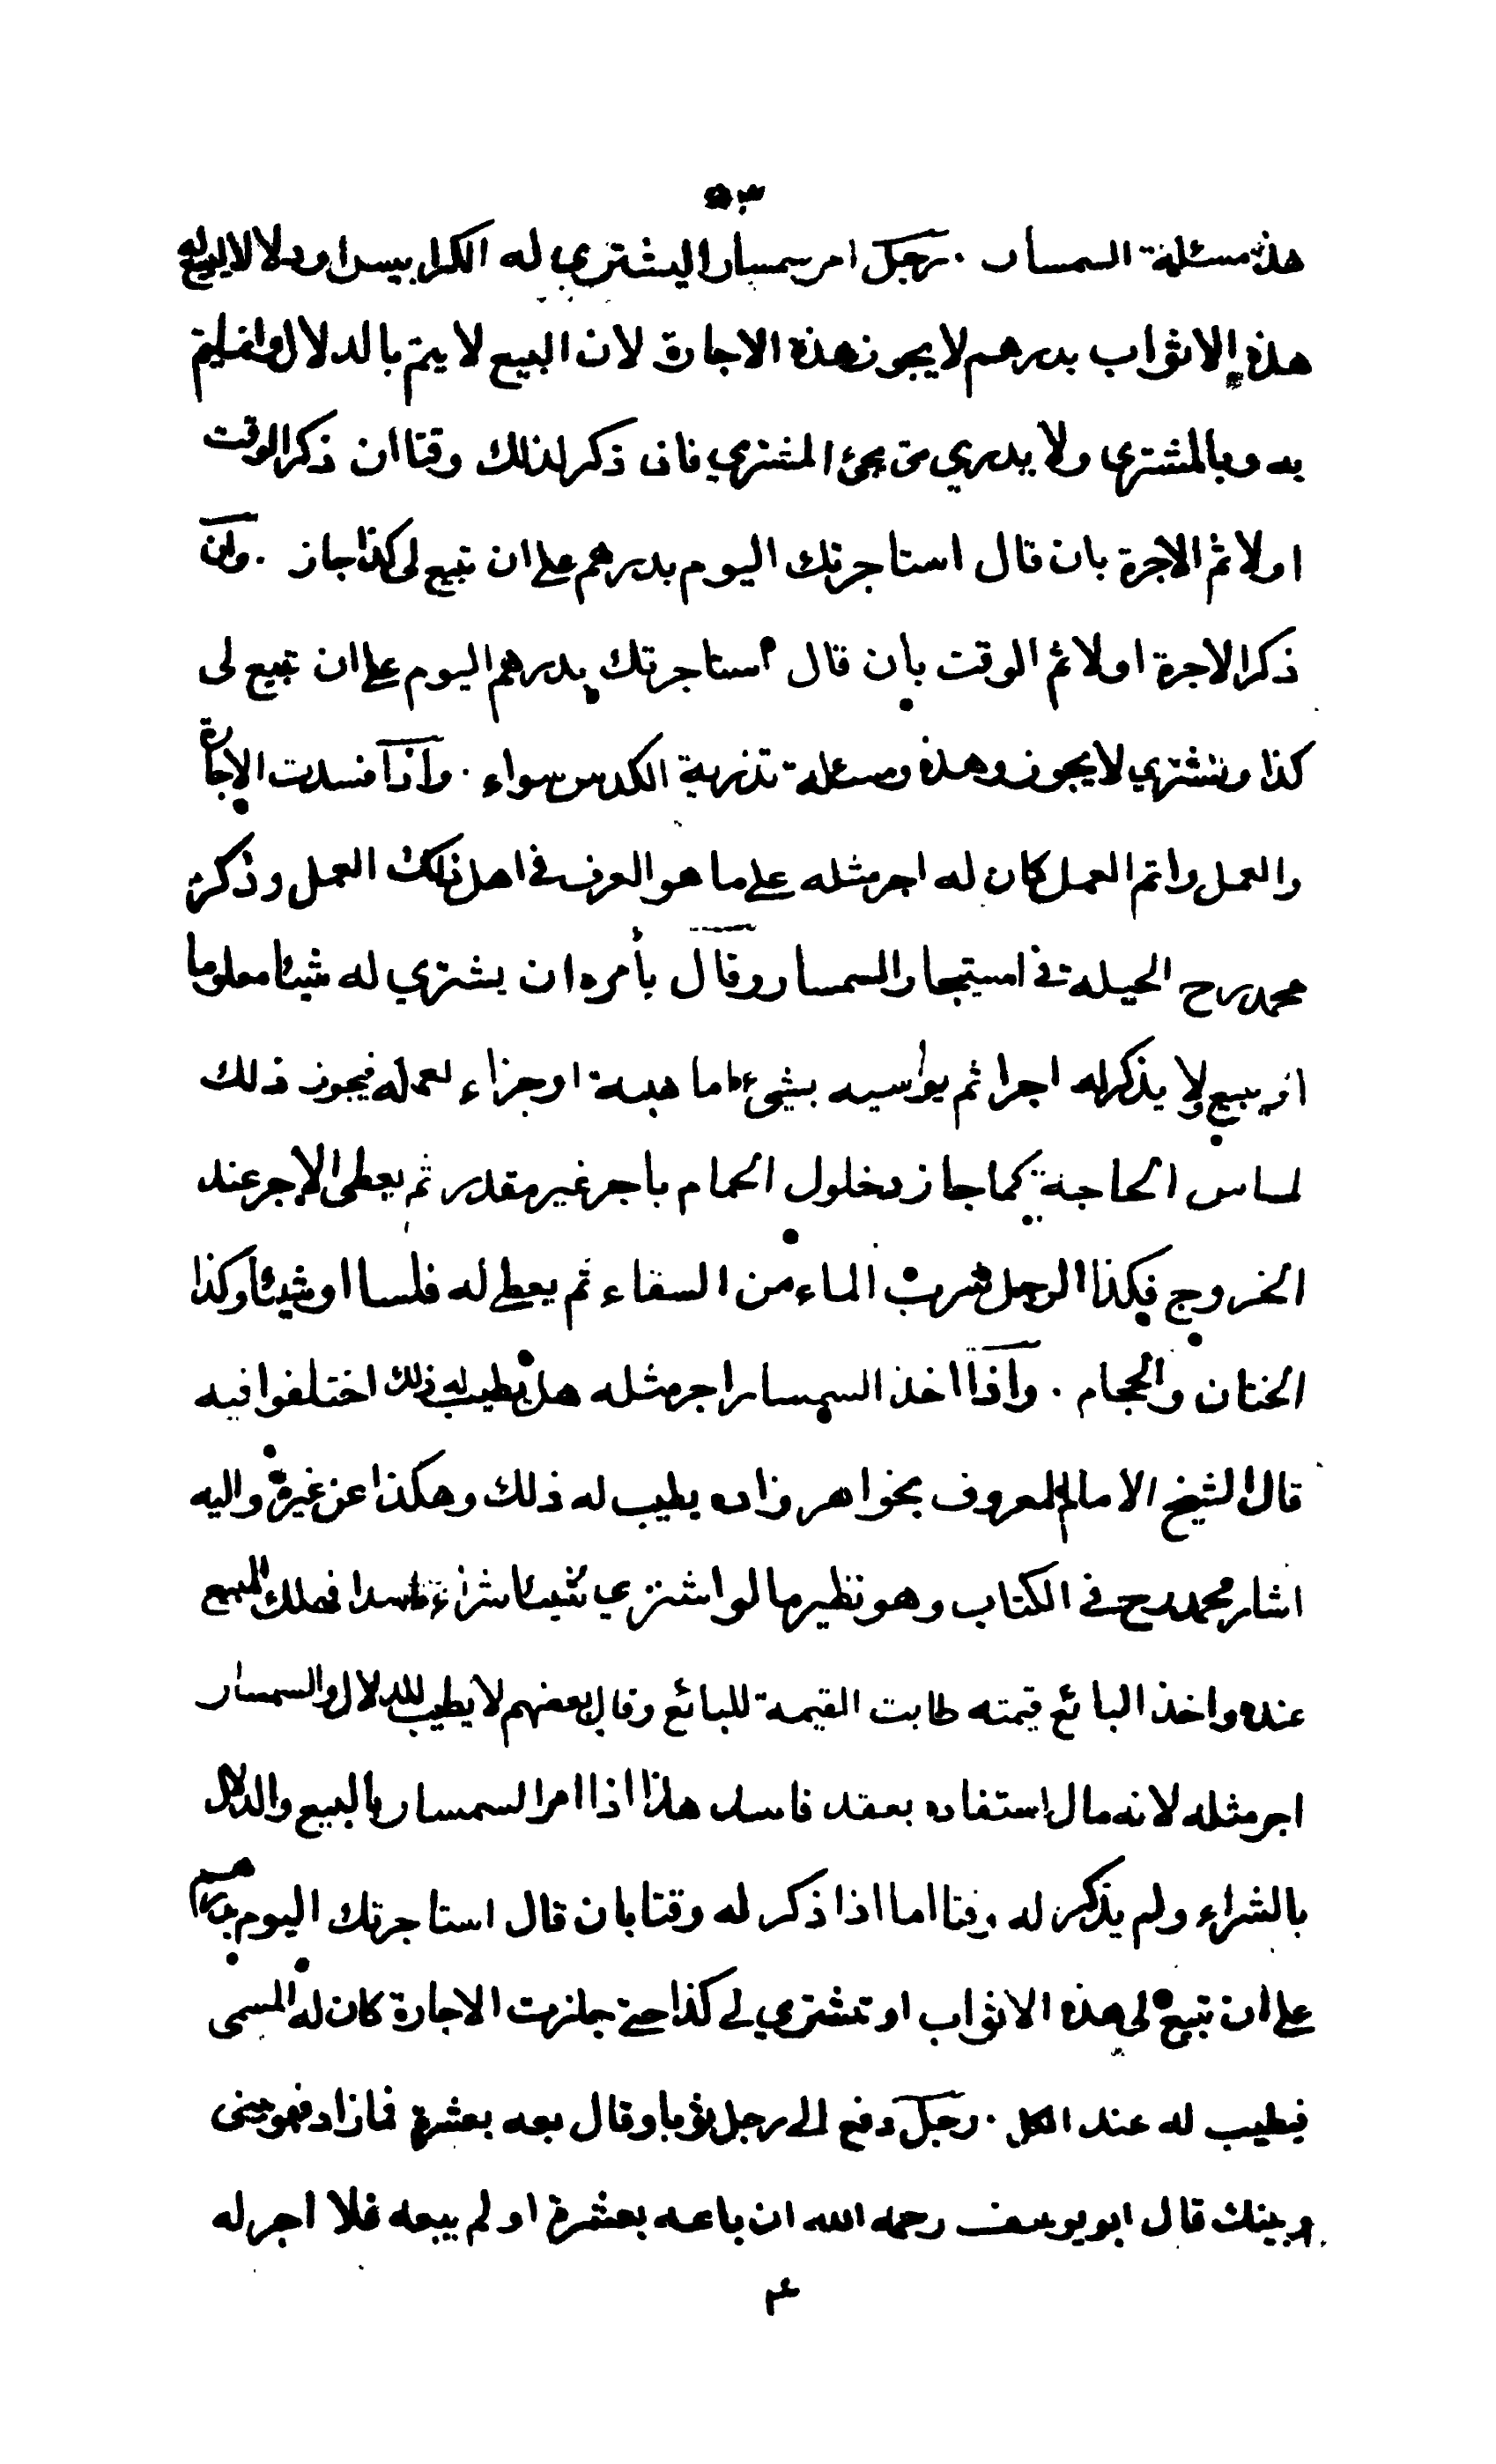 ٥٣
هذه مسئلة السمسار . رجل امر سمسارا ليشتري له الكرابيس او دلالا ليبيع له
هذه الاثواب بدرهم لا يجوز هذه الاجارة لان البيع لا يتم بالدلال وانما يتم
به وبالمشتري ولا يدري متى يجئ المشتري فان ذكر لذلك وقتا ان ذكر الوقت
اولا ثم الاجرة بان قال استاجرتك اليوم بدرهم على ان تبيع لى كذا جاز . وان
ذكر الاجرة اولا ثم الوقت بان قال استاجرتك بدرهم اليوم على ان تبيع لى
كذا وتشتري لا يجوز وهذه ومسئلة تذرية الكدس سواء . واذا فسدت الاجارة
والعمل واتم العمل كان له اجر مثله على ما هو العرف فى اهل ذلك العمل وذكر
محمد رح الحيلة فى استيجار السمسار وقال يأمره ان يشتري له شيئا معلوما
او يبيع ولا يذكر له اجرا ثم يواسيه بشئ اما هبة او جزاء لعمله فيجوز ذلك
لمساس الحاجة كما جاز دخول الحمام باجر غير مقدر ثم يعطى الاجر عند
الخروج فكذا الرجل شرب الماء من السقاء ثم يعطى له فلسا او شيئا وكذا
الختان والحجام . واذا اخذ السمسار اجر مثله هل يطيب له ذلك اختلفوا فيه
قال الشيخ الامام المعروف بخواهر زاده يطيب له ذلك وهكذا عن غيره واليه
اشار محمد رح فى الكتاب وهو نظير ما لو اشتري شيئا شراء فاسدا فهلك المبيع
عنده واخذ البائع قيمته طابت القيمة للبائع وقال بعضهم لا يطيب للدلال والسمسار
اجر مثله لانه مال استفاده بعقد فاسد هذا اذا امر السمسار بالبيع والدلال
بالشراء ولم يذكر له وقتا اما اذا ذكر له وقتا بان قال استاجرتك اليوم بدرهم
على ان تبيع لى هذه الاثواب او تشتري لى كذا حتى جازت الاجارة كان له المسمى
فيطيب له عند الكل . رجل دفع الى رجل ثوبا وقال بعه بعشرة فما زاد فهو بينى
وبينك قال ابو يوسف رحمه الله ان باعه بعشرة او لم يبعه فلا اجر له